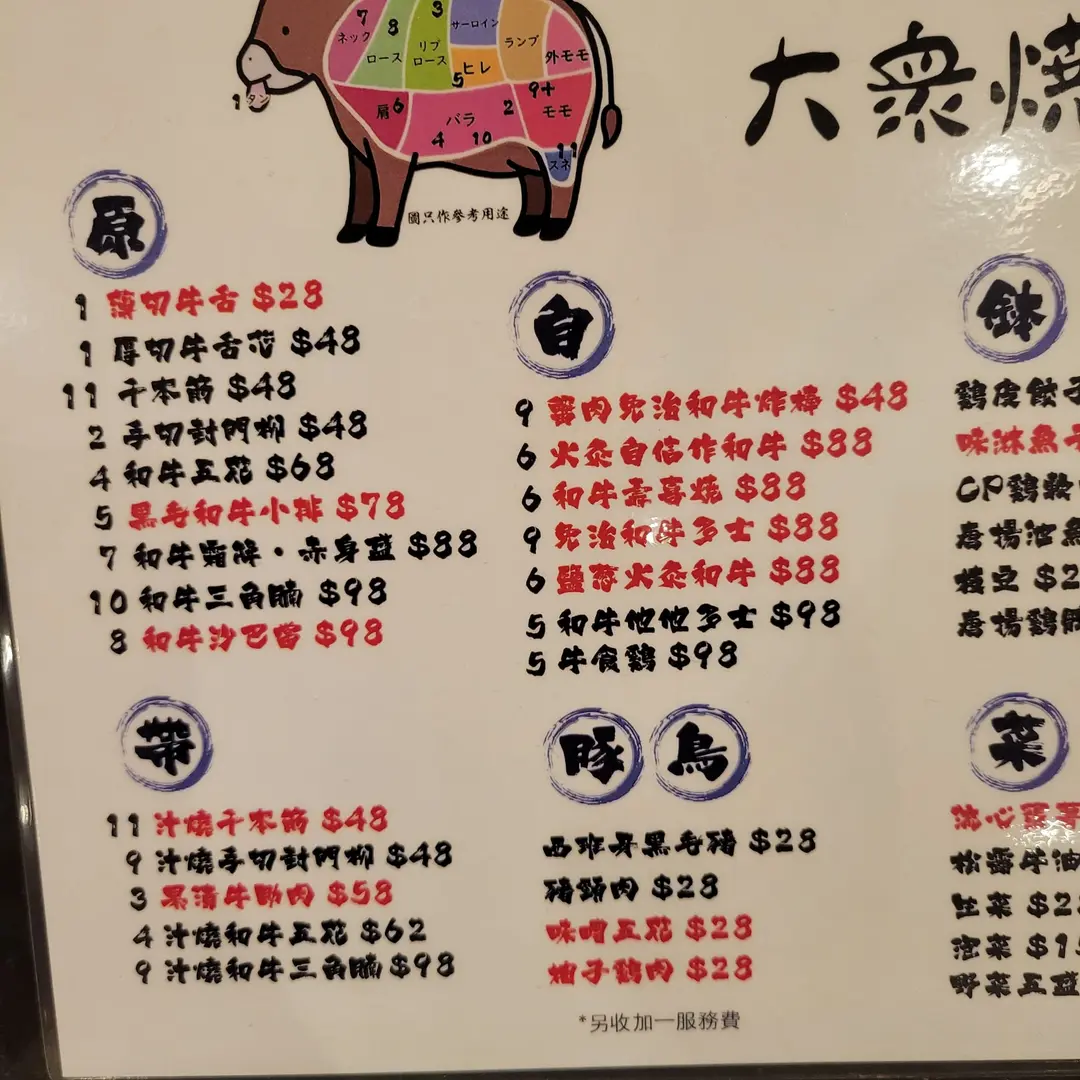 7
ネック
8
ロース
3
リブ
ロース
サーロイン
5
ヒレ
ランプ
外モモ
1 タン
肩 6
バラ
4 10
2
9+
モモ
11
スネ
圖只作參考用途
大衆焼
原
1 薄切牛舌 $28
1 厚切牛舌芯 $48
11 千本筋 $48
2 手切封門柳 $48
4 和牛五花 $68
5 黒毛和牛小排 $78
7 和牛霜降・赤身盛 $88
10 和牛三角腩 $98
8 和牛沙巴當 $98
自
9 蟹肉免治和牛炸棒 $48
6 火炙自信作和牛 $88
6 和牛壽喜燒 $88
9 免治和牛多士 $88
6 鹽蔥火炙和牛 $88
5 和牛他他多士 $98
5 牛食鷄 $98
鉢
鷄皮餃子
味淋魚子
CP鷄軟
唐揚池魚
枝豆 $2
唐揚鷄
帶
11 汁燒千本筋 $48
9 汁燒手切封門柳 $48
3 果漬牛肋肉 $58
4 汁燒和牛五花 $62
9 汁燒和牛三角腩 $98
豚 鳥
西班牙黒毛豬 $28
豬頸肉 $28
味噌五花 $28
柚子鷄肉 $28
*另收加一服務費
菜
流心
松露牛油
生菜 $2
泡菜 $1
野菜五盛